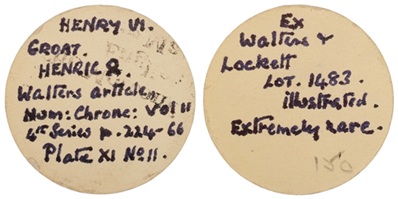 HENRY VI.
GROAT.
HENRIC R.
Walters article
Num: Chronc: Vol II
4th Series p. 224-66
Plate XI No 11.
Ex
Walters &
Lockett
LOT. 1483.
illustrated.
Extremely rare.
150